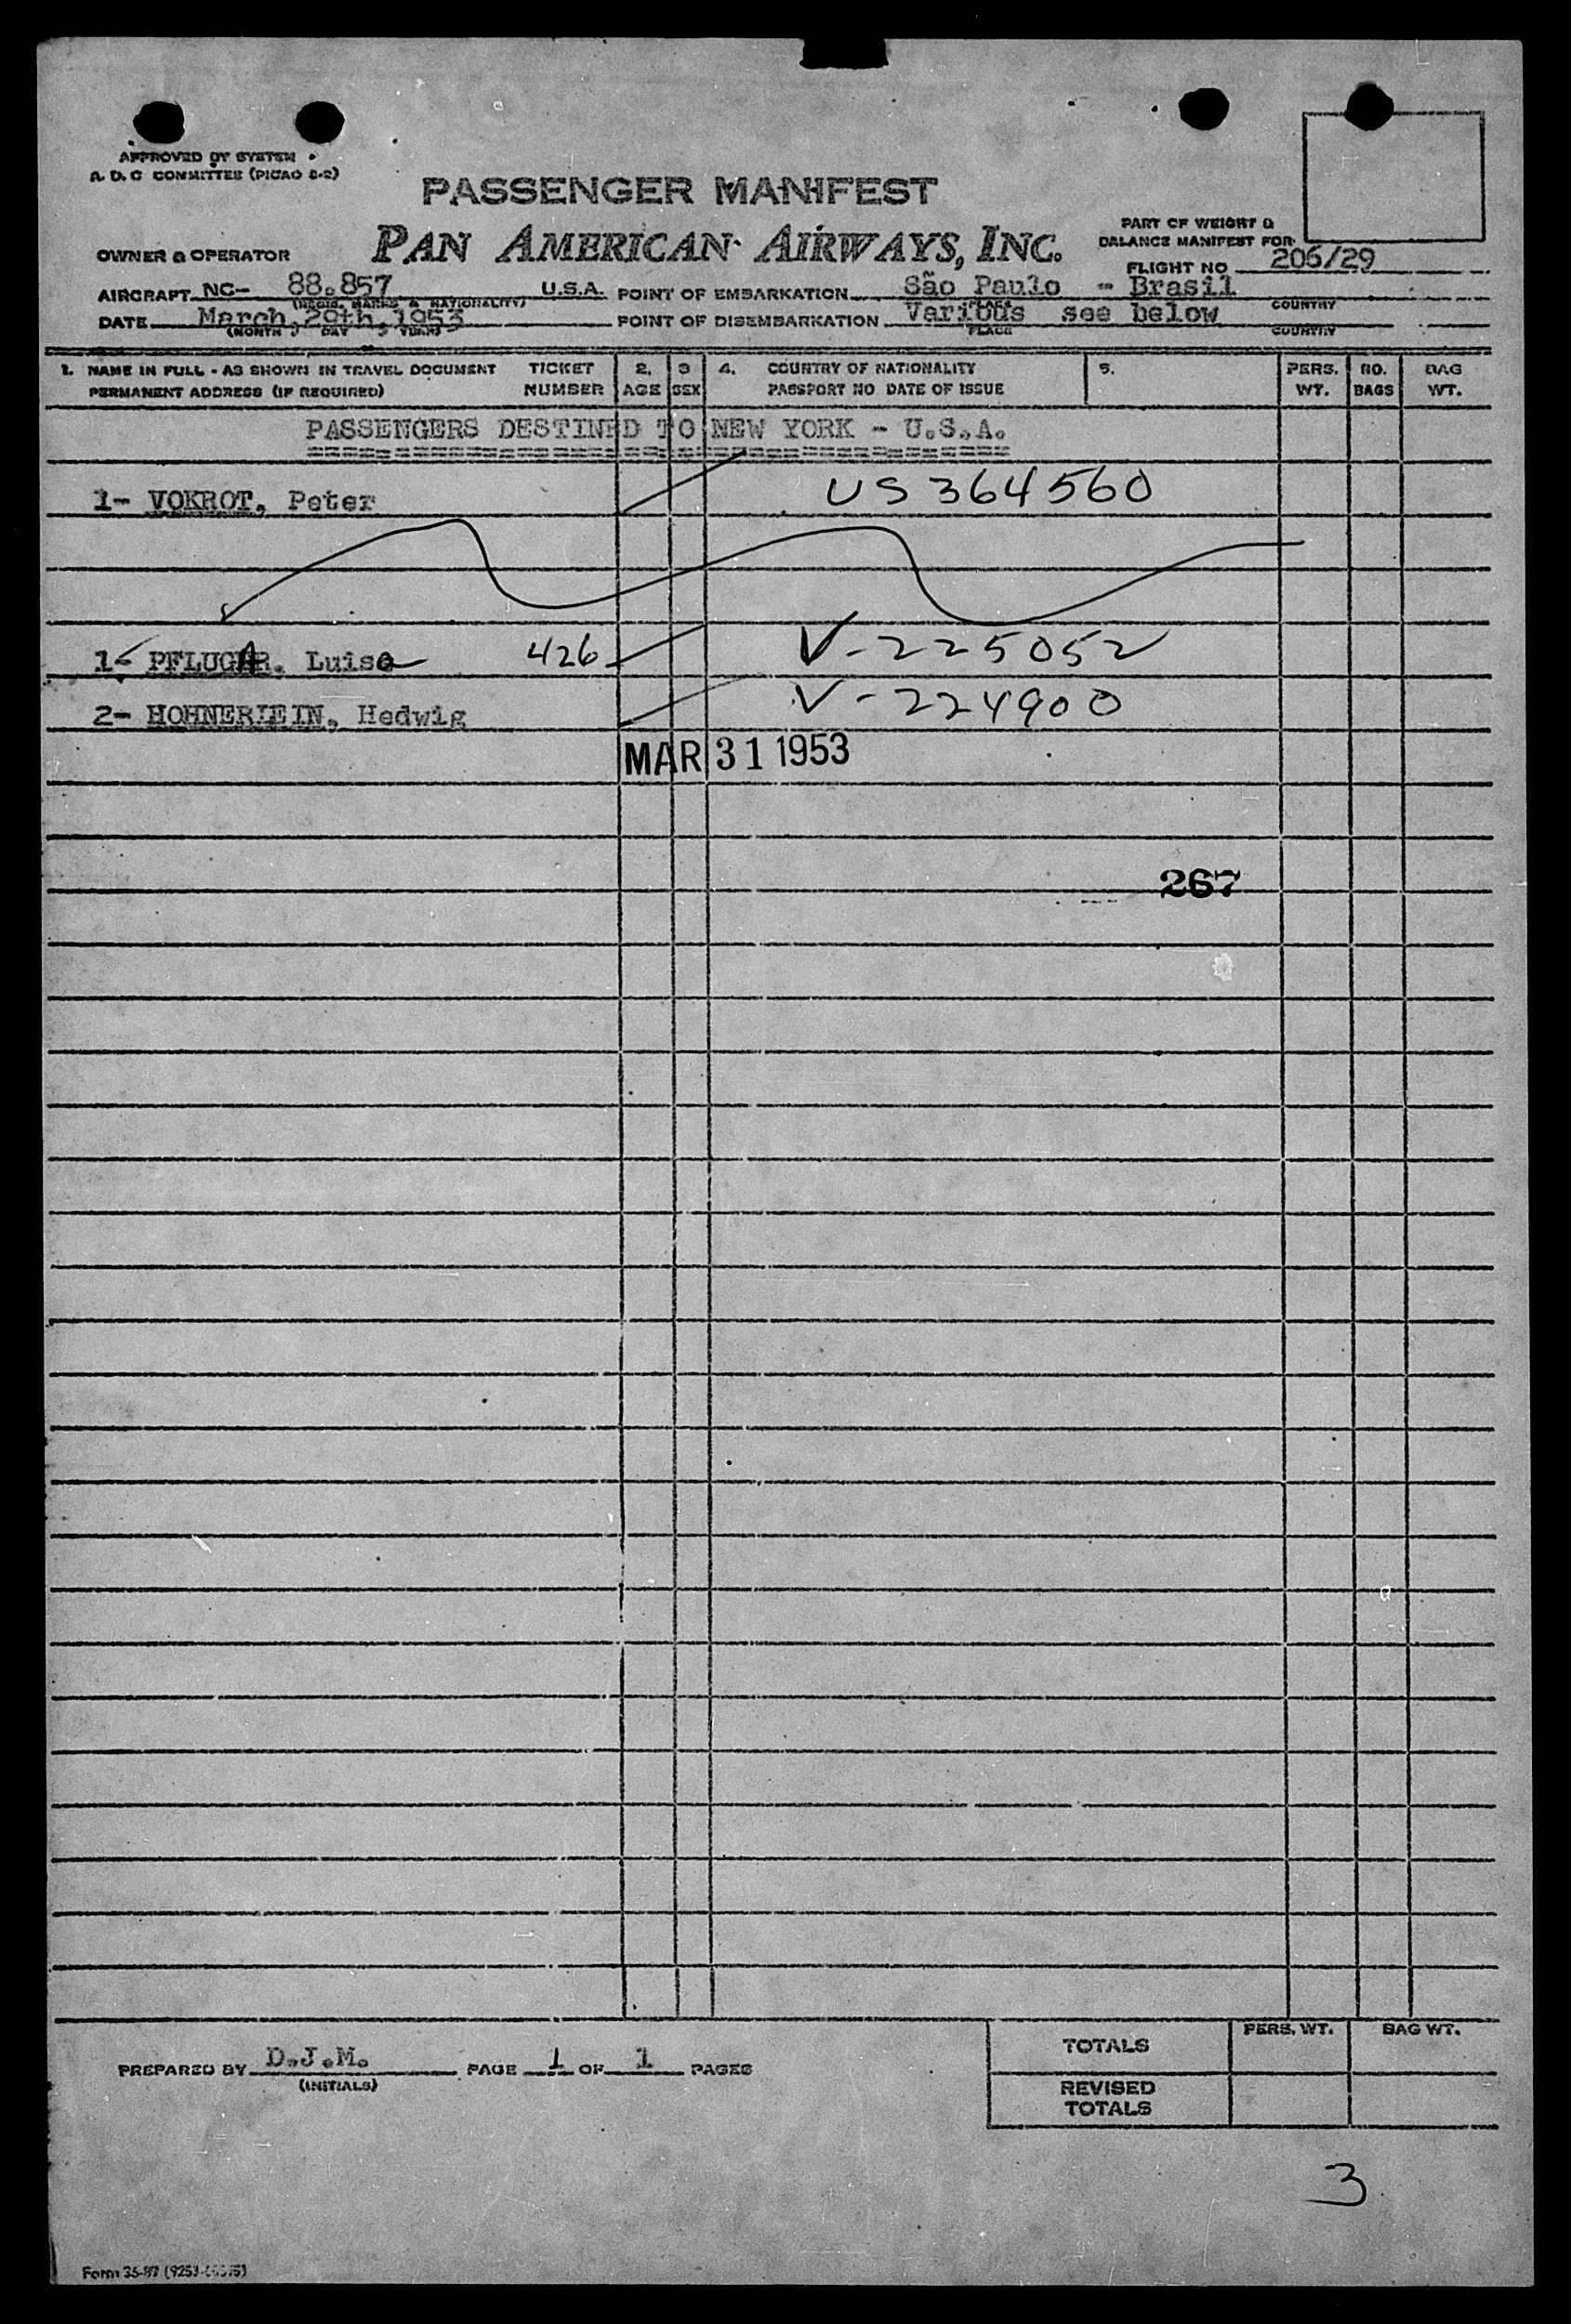 APPROVED BY SYSTEM
A. D. C COMMITTEE (PICAO 2-2)
PASSENGER MANIFEST
PAN AMERICAN AIRWAYS, INC.
PART OF WEIGHT &
BALANCE MANIFEST FOR
OWNER & OPERATOR
FLIGHT NO 206/29
AIRCRAFT NC- 88.857 U.S.A. POINT OF EMBARKATION São Paulo - Brasil
(REGIS. MARKS & NATIONALITY) PLACE COUNTRY
DATE March, 29th, 1953 POINT OF DISEMBARKATION Various see below
(MONTH , DAY , YEAR) PLACE COUNTRY
1. NAME IN FULL - AS SHOWN IN TRAVEL DOCUMENT TICKET 2. 3 4. COUNTRY OF NATIONALITY 5. PERS. NO. BAG
PERMANENT ADDRESS (IF REQUIRED) NUMBER AGE SEX PASSPORT NO DATE OF ISSUE WT. BAGS WT.
PASSENGERS DESTINED TO NEW YORK - U.S.A.
1- VOKROT, Peter US 364560
1- PFLUGAR. Luise 426 V-225052
2- HOHNERLEIN, Hedwig V-224900
MAR 31 1953
267
TOTALS PERS. WT. BAG WT.
PREPARED BY D.J.M. PAGE 1 OF 1 PAGES
(INITIALS)
REVISED
TOTALS
3
Form 36-87